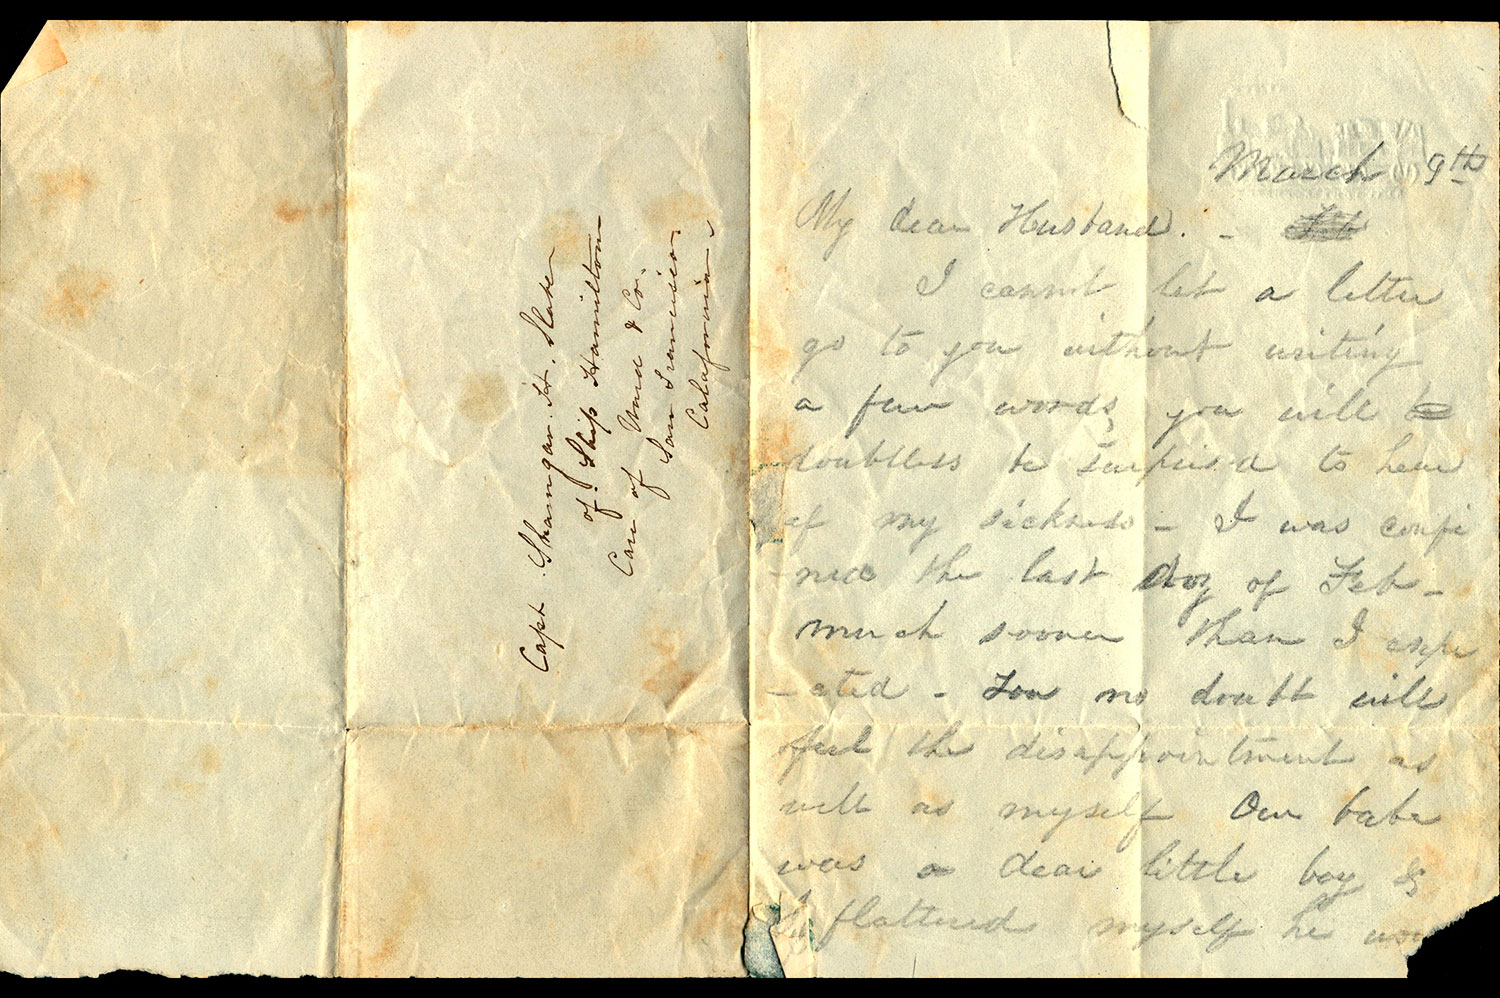 Capt. Shamgar. H. Slate
of. Ship Hamilton
Care of Wmd & Co.
San Francisico
Calafornia
March 9th
My dear Husband. -
I cannot let a letter
go to you without writing
a few words, you will
doubtless be surprised to hear
of my sickness - I was confi
-ned the last day of Feb -
much sooner than I expe
-cted - You no doubt will
feel the disappointment as
well as myself Our babe
was a dear little boy &
I flattered myself he